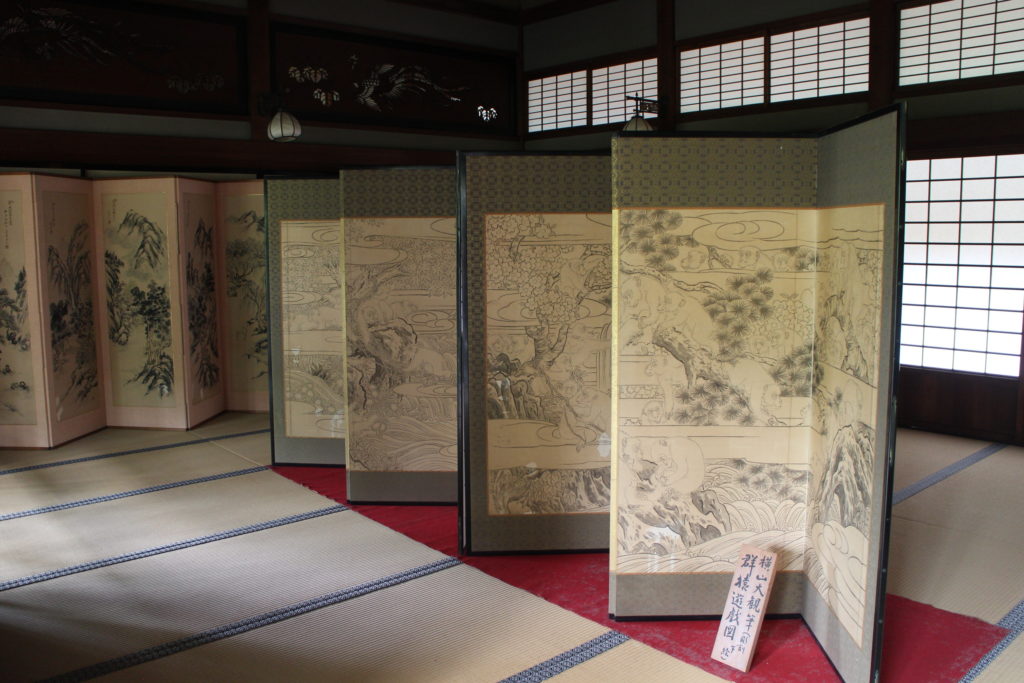 横山大観筆(彫刻下絵)
群猿遊戯図